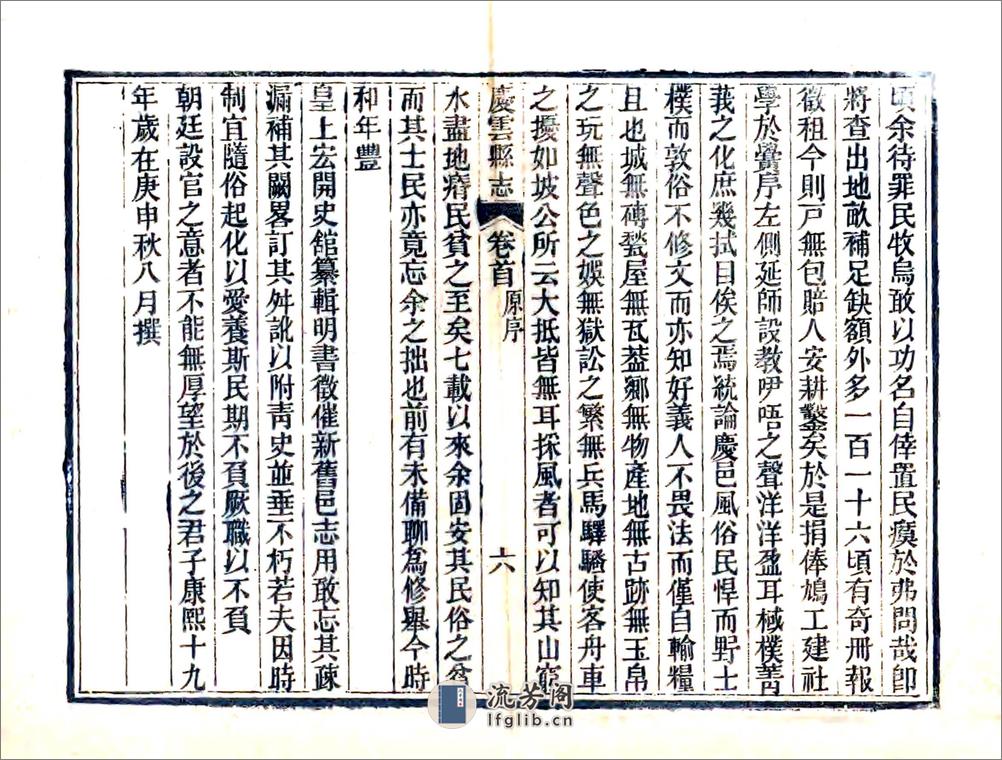 頃余待罪民牧烏敢以功名自倖置民瘼於弗問哉卽
將查出地畝補足缺額外多一百一十六頃有奇冊報
徵租今則戸無包賠人安耕鑿矣於是捐俸鳩工建社
學於黌序左側延師設教咿唔之聲洋洋盈耳棫樸菁
莪之化庶幾拭目俟之焉統論慶邑風俗民悍而野士
樸而敦俗不修文而亦知好義人不畏法而僅自輸糧
且也城無磚甃屋無瓦葢鄉無物產地無古跡無玉帛
之玩無聲色之娛無獄訟之繁無兵馬驛騷使客舟車
之擾如坡公所云大抵皆無耳採風者可以知其山窮
慶雲縣志 卷首 原序 六
水盡地瘠民貧之至矣七載以來余固安其民俗之貧
而其士民亦竟忘余之拙也前有未備聊為修舉今時
和年豐
皇上宏開史館纂輯明書徵催新舊邑志用敢忘其疎
漏補其闕畧訂其舛訛以附靑史並垂不朽若夫因時
制宜隨俗起化以愛養斯民期不負厥職以不負
朝廷設官之意者不能無厚望於後之君子康熙十九
年歲在庚申秋八月撰
流芳阁
lfglib.cn